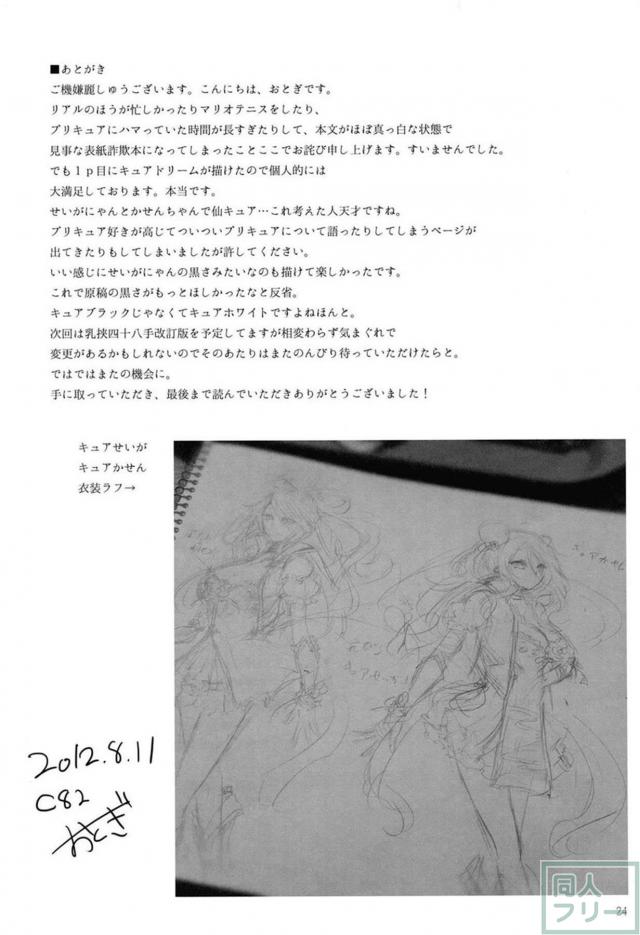 ■あとがき
ご機嫌麗しゅうございます。こんにちは、おとぎです。
リアルのほうが忙しかったりマリオテニスをしたり、
プリキュアにハマっていた時間が長すぎたりして、本文がほぼ真っ白な状態で
見事な表紙詐欺本になってしまったことここでお詫び申し上げます。すいませんでした。
でも１ｐ目にキュアドリームが描けたので個人的には
大満足しております。本当です。
せいがにゃんとかせんちゃんで仙キュア…これ考えた人天才ですね。
プリキュア好きが高じてついついプリキュアについて語ったりしてしまうページが
出てきたりもしてしまいましたが許してください。
いい感じにせいがにゃんの黒さみたいなのも描けて楽しかったです。
これで原稿の黒さがもっとほしかったなと反省。
キュアブラックじゃなくてキュアホワイトですよねほんと。
次回は乳挟四十八手改訂版を予定してますが相変わらず気まぐれで
変更があるかもしれないのでそのあたりはまたのんびり待っていただけたらと。
ではではまたの機会に。
手に取っていただき、最後まで読んでいただきありがとうございました！
キュアせいが
キュアかせん
衣装ラフ→
キュアかせん
2012.8.11
C82
おとぎ
同人
フリー
24